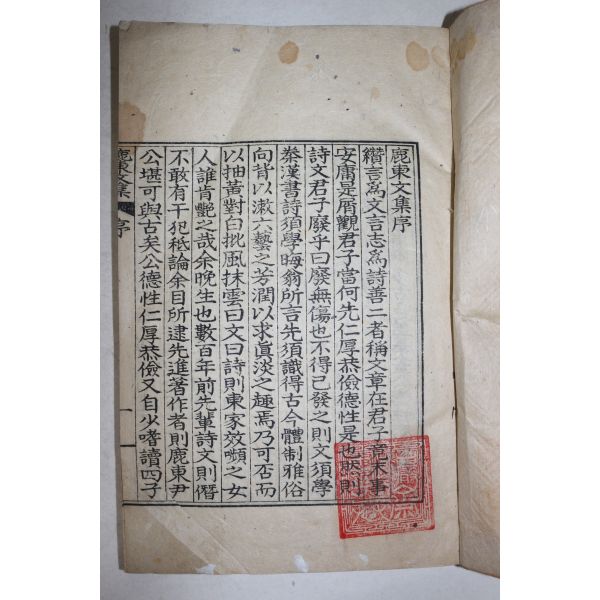 鹿東文集序
纘言爲文言志爲詩善二者稱文章在君子竟末事
安庸是屑觀君子當何先仁厚恭儉德性是也然則
詩文君子廢乎曰廢無傷也不得已發之則文須學
秦漢書詩須學晦翁所言先須識得古今體制雅俗
向背以漱六藝之芳潤以求眞淡之趣焉乃可否而
以抽黃對白批風抹雲曰文曰詩則東家效嚬之女
人誰肯艷之哉余晚生也數百年前先輩詩文則僭
不敢有干犯秪論余目所逮先進著作者則鹿東尹
公堪可與古矣公德性仁厚恭儉又自少嗜讀四子
鹿東文集 序 一